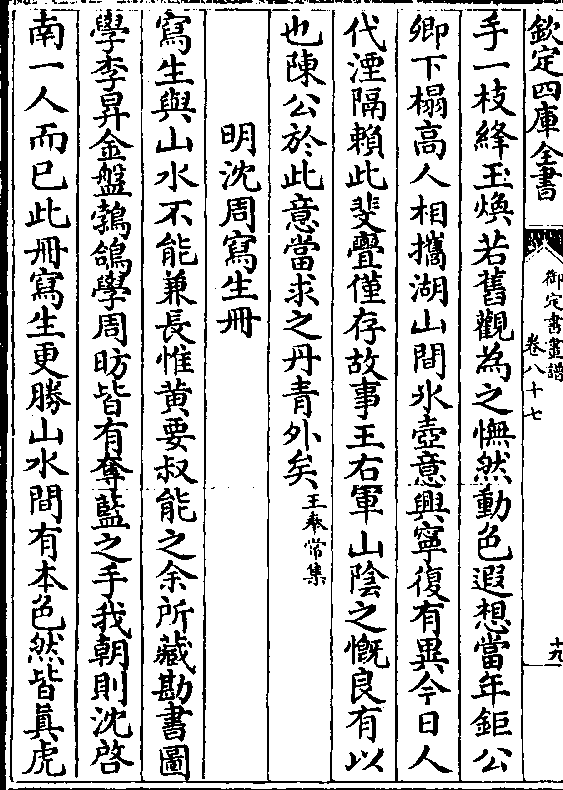 欽定四庫全書
御定書畫譜
卷八十七
十九
手一枝絳玉煥若舊觀為之憮然動色遐想當年鉅公
卿下榻高人相攜湖山間氷壺意興寧復有異今日人
代湮隔賴此斐亹僅存故事王右軍山陰之慨良有以
也陳公於此意當求之丹青外矣王奉常集
明沈周寫生冊
寫生與山水不能兼長惟黄要叔能之余所藏勘書圖
學李昇金盤鵓鴿學周昉皆有奪藍之手我朝則沈啓
南一人而已此冊寫生更勝山水間有本色然皆真虎